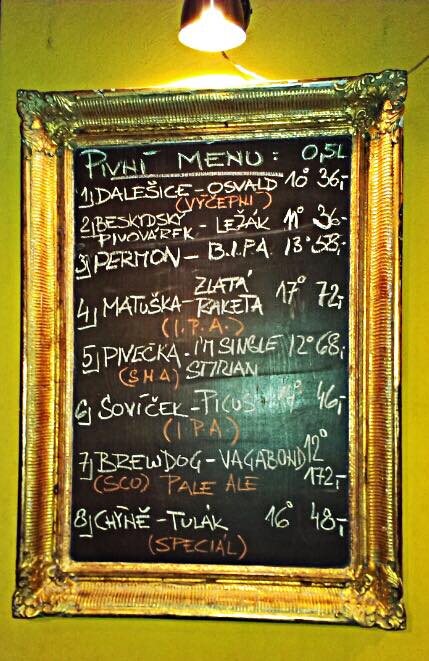 PIVNÍ MENU: 0,5L
1) DALEŠICE - OSVALD 10° 36,-
(VÝČEPNÍ)
2) BESKYDSKÝ
PIVOVÁREK - LEŽÁK 11° 36-
3) PERMON - B.I.P.A 13° 58,-
ZLATÁ
4) MATUŠKA - RAKETA 17° 72,-
(I.P.A.)
5) PIVEČKA - I'M SINGLE 12° 68,-
(SHA) STIRIAN
6) SOVÍČEK - PICUS 46,-
(IPA)
7) BREWDOG - VAGABOND 12°
(SCO) PALE ALE 172,-
8) CHÝNĚ - TULÁK 16° 48,-
(SPECIÁL)